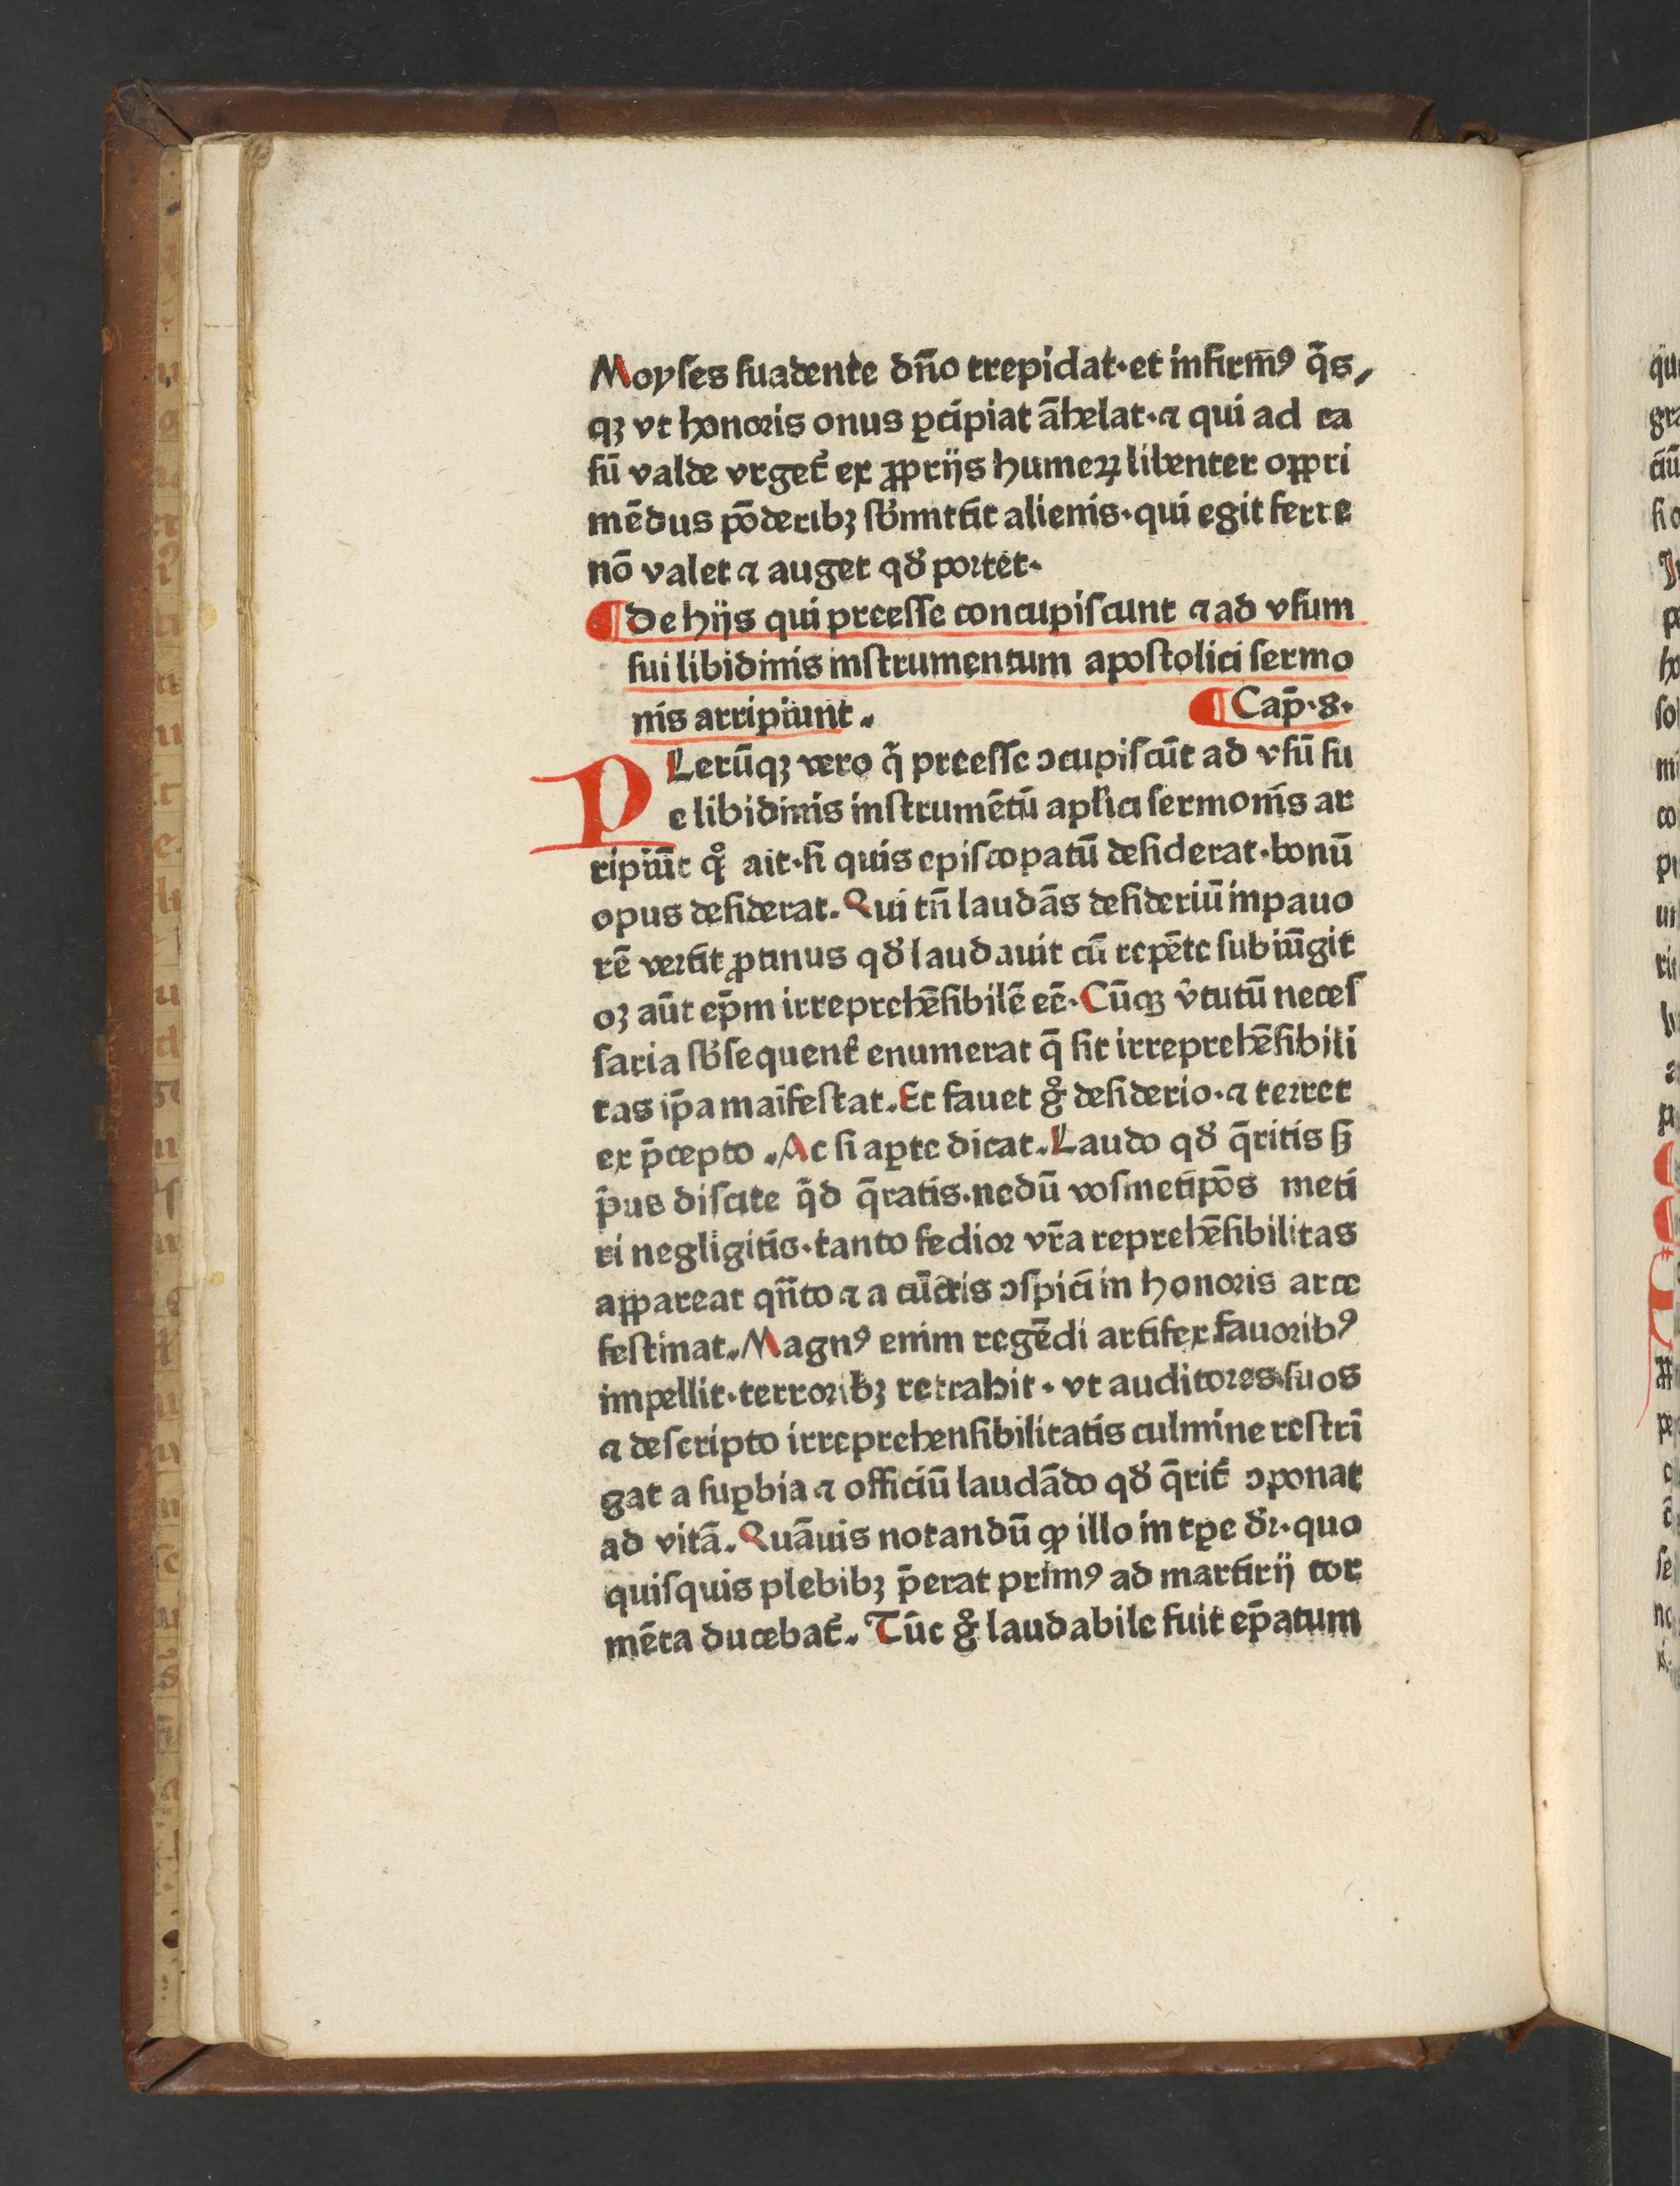 Moyſes ſuadente dn̄o trepidat·et infirm̄ꝰ q̄s,
qꝫ vt honoris onus ꝑcipiat āhelat·⁊ qui ad ca
ſū valde vrget᷑ ex ꝓprijs humeꝝ libenter oppri
mēdus pōderibꝫ ſb̓mittit alienis·qui egit ferre
nō valet ⁊ auget qd̓ portet·
¶De hijs qui preeſſe concupiſcunt ⁊ ad vſum
ſui libidinis inſtrumentum apoſtolici ſermo
nis arripiunt. ¶Cap̄·8·
PLerūqꝫ vero q̄ preeſſe ↄcupiſcūt ad vſū ſu
e libidinis inſtrumētū apl̓ici ſermonis ar
ripiūt qͦ ait·ſi quis epiſcopatū deſiderat·bonū
opus deſiderat. Qui tn̄ laudās deſideriū inpauo
rē vertit ꝓtinus qd̓ laudauit cū repēte ſubiūgit
oꝫ aūt ep̄m irreprehēſibilē eē·Cūqꝫ v̓tutū neceſ
ſaria ſb̓ſequent᷑ enumerat q̄ ſit irreprehēſibili
tas ip̄a maīfeſtat. Et fauet gͦ deſiderio·⁊ terret
ex p̄cepto. Ac ſi aꝑte dicat. Laudo qd̓ q̄ritis ſꝫ
p̄us diſcite q̄d q̄ratis·nedū voſmetip̄os meti
ri negligitis·tanto fedior vr̄a reprehēſibilitas
appareat qn̄to ⁊ a cūctis ↄſpici in honoris arce
feſtinat. Magnꝰ enim regēdi artifex fauoribꝰ
impellit·terroribꝫ retrahit·vt auditores ſuos
⁊ deſcripto irreprehenſibilitatis culmine reſtrī
gat a ſuꝑbia ⁊ officiū laudādo qd̓ q̄rit᷑ ↄponat
ad vitā. Quāuis notandū ꝙ illo in tꝑe dr̄·quo
quiſquis plebibꝫ p̄erat primꝰ ad martirij tor
mēta ducebat᷑. Tūc gͦ laudabile fuit ep̄atum